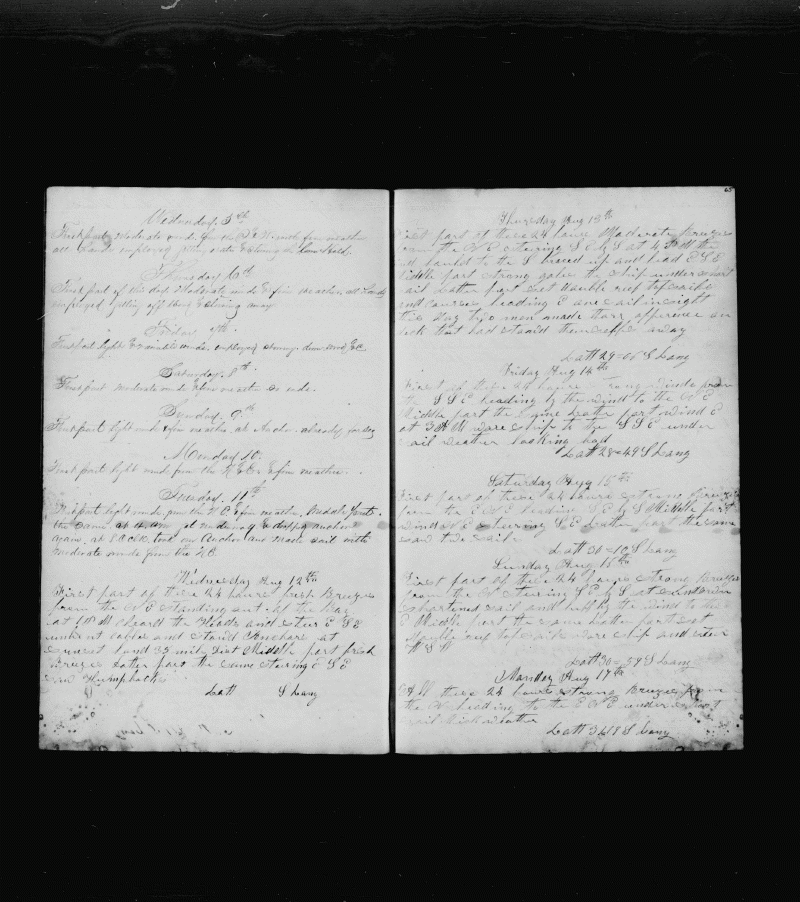 Wednesday. 5th
First part, Moderate winds from the with fine weather
all hands employed getting water & stowing the
Thursday 6th
First part of this day Moderate winds & fine weather, all hands
employed getting off & stowing away
Friday 7th.
First part light & variable winds. employed stowing down wood &c
Saturday. 8th.
First part moderate winds & fine weather so ends.
Sunday. 9th
First part light winds & fine weather, at Anchor. already for sea
Monday 10.
First part light winds from the & fine weather.
Tuesday. 11th
First part light winds from the N E & fine weather. Middle part.
the same at 4 AM got underway & dropt anchor
again. at 8 took our Anchor and made sail with
moderate winds from the NE.
Wednesday Aug 12th
First part of these 24 hours fresh Breezes
from the N E standing out of the bay
at 1 PM cleard the Heads and steer E S E
unbent cables and stowd Anchors at
sunset land 35 mile Dist Middle part fresh
Breezes Latter part the same steering E S E
saw Humpbacks
Latt S Long
65
Thursday Aug 13th
First part of these 24 hours Moderate Breezes
from the N E steering S E by S at 4 PM the
wind hauled to the S braced up and head E S E
Middle part strong gales the ship under short
sail Latter part set double reef topsails
and courses heading E one sail in sight
this day two men made thare apperence on
deck that had stowd themselfs away
Latt 29=01 S Long
Friday Aug 14th
First of these 24 hours Strong Winds from
the S S E heading by the wind to the N E
Middle part the same Latter part wind E
at 3 AM wore ship to the S S E under
sail weather looking bad
Latt 28=49 S Long
Saturday Aug 15th
First part of these 24 hours strong Breezes
from the E N E heading S E by S Middle part
wind N E steering S E Latter part the same
saw two sails
Latt 30=10 S Long
Sunday Aug 16th
First part of these 24 hours strong Breezes
from the N steering S E by S at sundown
shortened sail and luff by the wind to the
E Middle part the same Latter part set
double reef topsails wore ship and steer
W S W
Latt 30=59 S Long
Monday Aug 17th
All these 24 hours strong Breezes from
the N heading to the E N E under short
sail thick weather
Latt 31 18 S Long